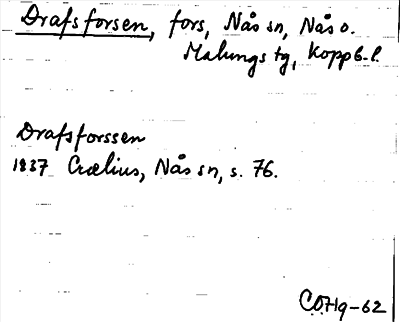 Drafsforsen, fors, Nås sn, Nås o.
Malungs tg, Koppb. l.
Drafsforssen
1837 Crælius, Nås sn, s. 76.